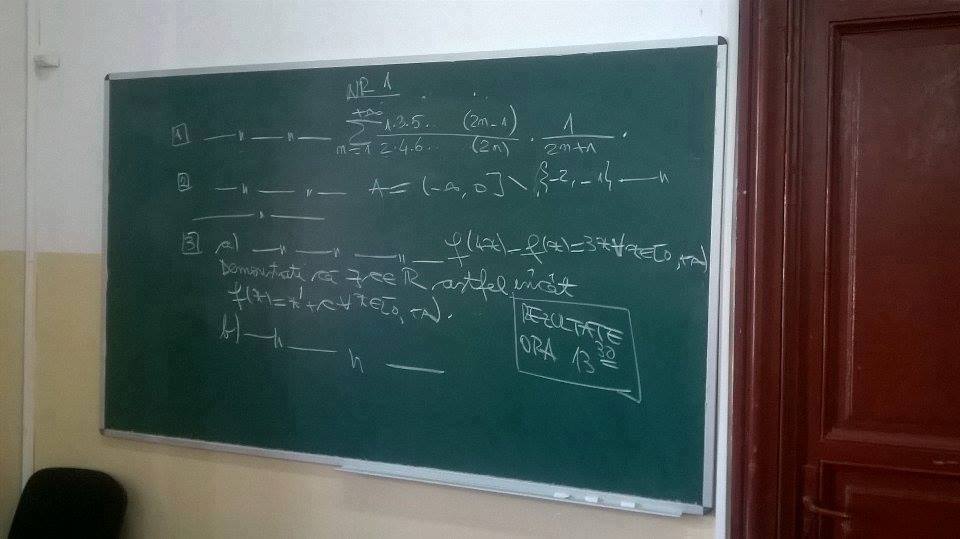 NR 1
1 —"— —"— \sum_{n=1}^{+\infty} \frac{1·3·5·... (2n-1)}{2·4·6·... (2n)} · \frac{1}{2n+1} .
2 —"— —"— A = (-∞, 0] \ {-2, -1} —"
—"—
3 a) —"— —"— —"— f(4x) - f(x) = 3x ∀ x ∈ [0, +∞)
Demonstrati că ∃ c ∈ R astfel încât
f(x) = x + c ∀ x ∈ [0, +∞).
b) —"— " —
REZULTATE
ORA 13 30